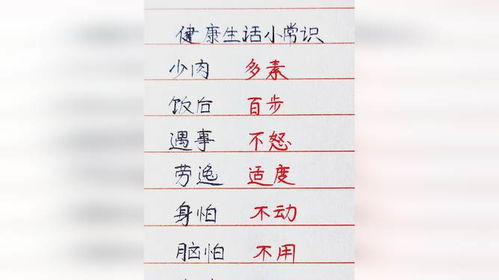 健康生活小常识
少肉 多素
饭后 百步
遇事 不怒
劳逸 适度
身怕 不动
脑怕 不用